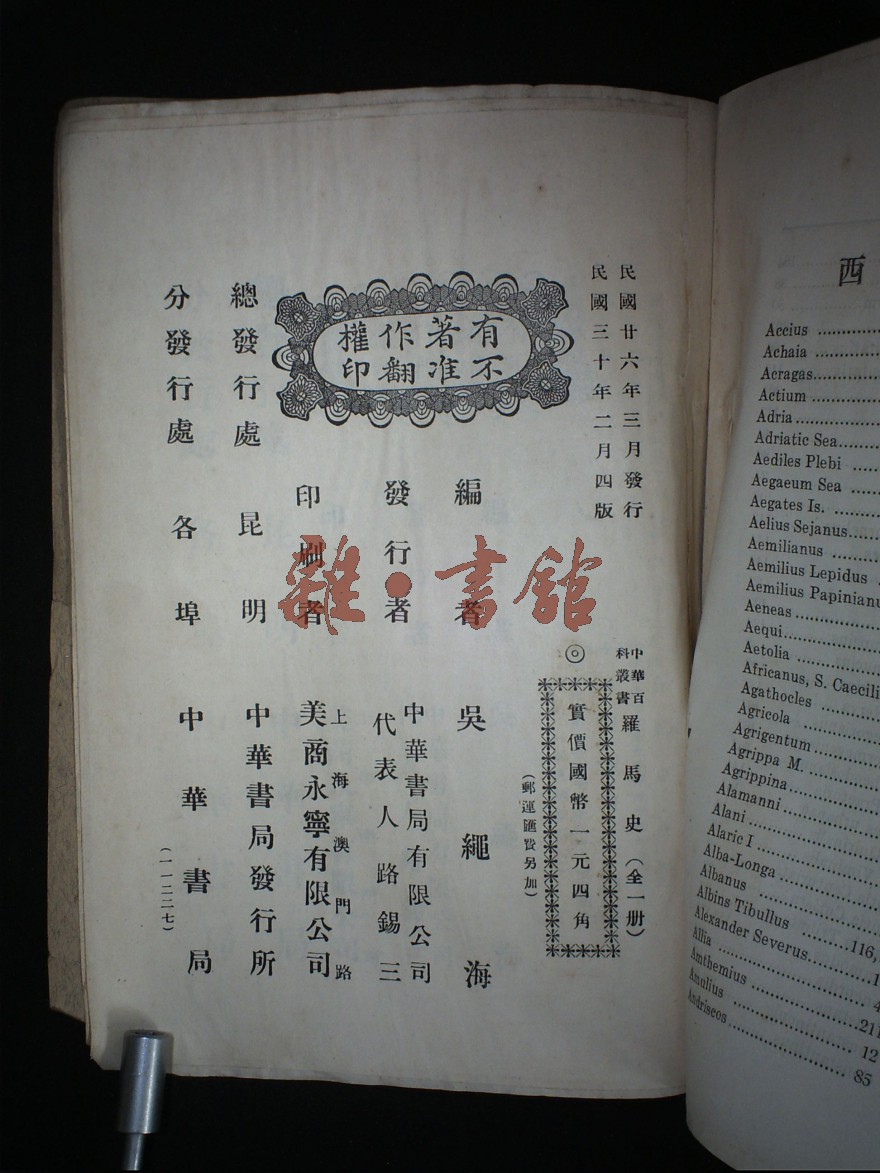 民國廿六年三月發行
民國三十年二月四版
有著作權
不准翻印
中華百科叢書 羅馬史（全一册）
◎實價國幣一元四角
（郵運匯費另加）
編者 吳繩海
發行者 中華書局有限公司
代表人路錫三
印刷者 上海澳門路
美商永寧有限公司
總發行處 昆明 中華書局發行所
分發行處 各埠 中華書局
（一一二二七）
雜·書館
西
Accius
Achaia
Acragas
Actium
Adria
Adriatic Sea
Aediles Plebi
Aegaeum Sea
Aegates Is.
Aelius Sejanus
Aemilianus
Aemilius Lepidus
Aemilius Papinianu
Aeneas
Aequi
Aetolia
Africanus, S. Caecili
Agathocles
Agricola
Agrigentum
Agrippa M.
Agrippina
Alamanni
Alani
Alaric I
Alba-Longa
Albanus
Albins Tibullus
Alexander Severus ........116,
Allia
Amthemius
Amulius ........211
Andriscos ........12
85